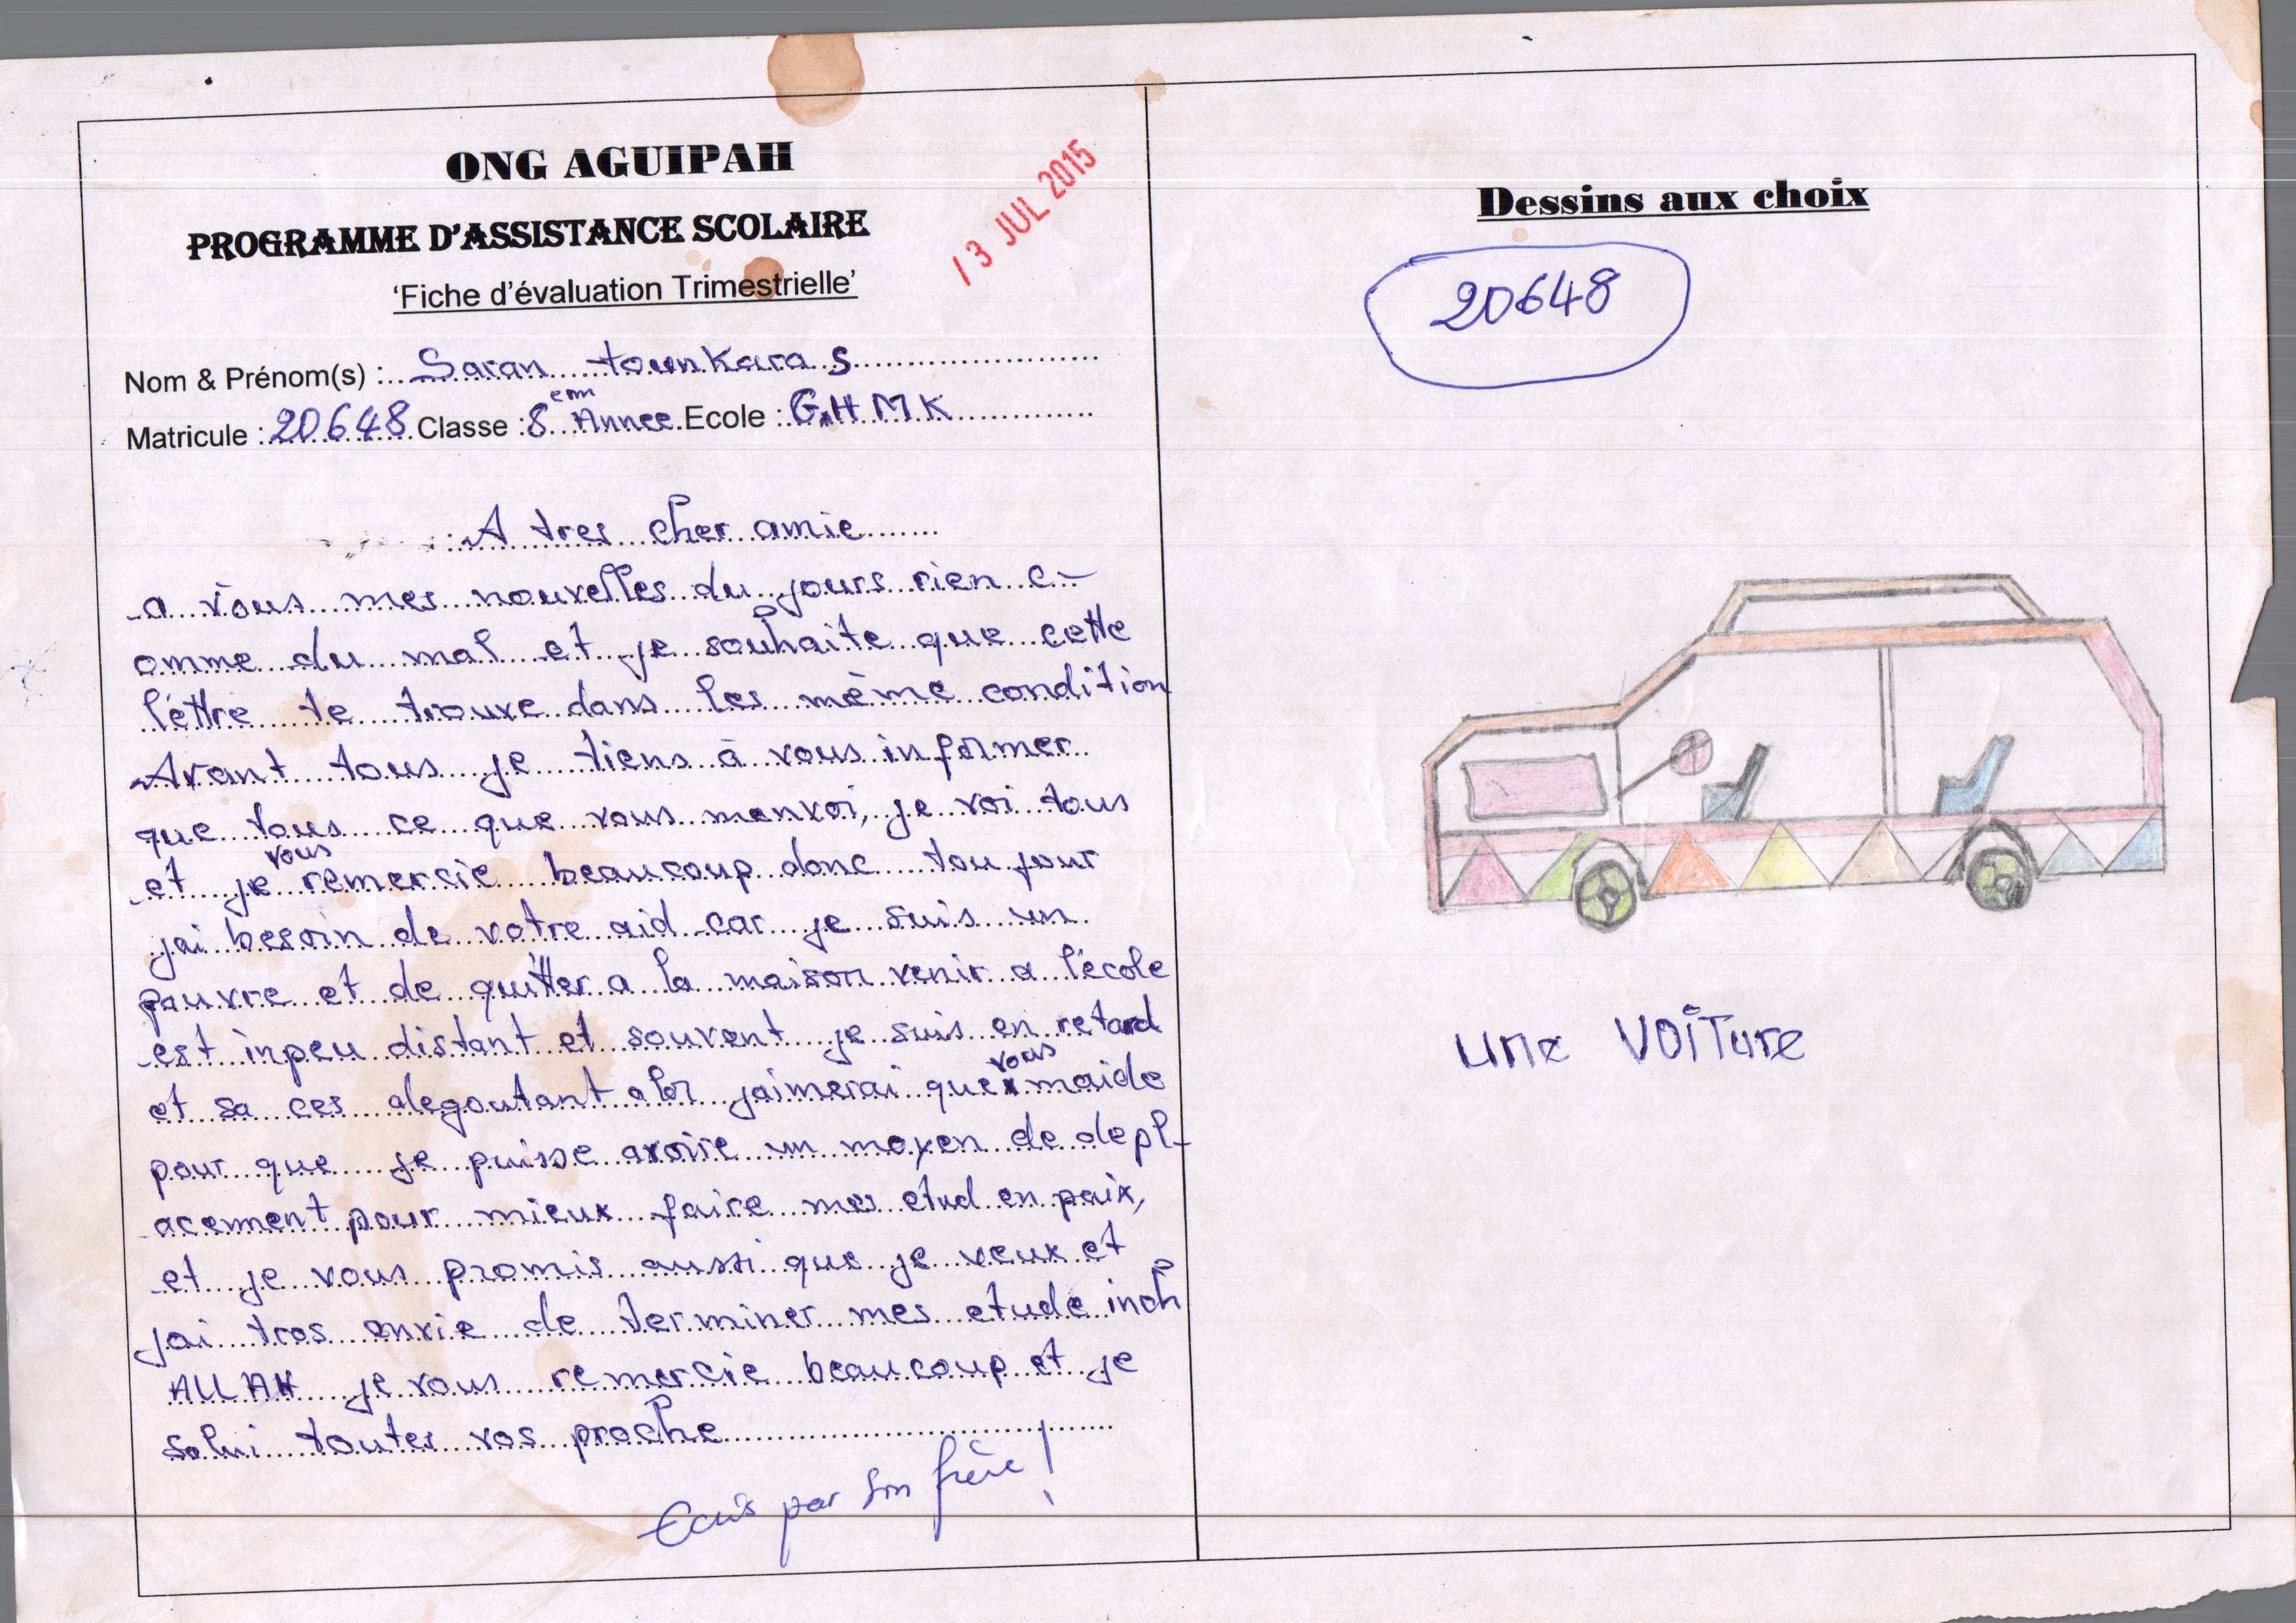 ONG AGUIPAH
PROGRAMME D'ASSISTANCE SCOLAIRE
'Fiche d'évaluation Trimestrielle'
13 JUL 2015
Nom & Prénom(s) : Saran tounkara S
Matricule : 20648 Classe : 8 em Annee Ecole : G.H M K
A tres cher amie
a vous mes nouvelles du jours rien c-
omme du mal et je souhaite que cette
léttre te trouve dans les mème condition
Avant tous je tiens à vous informer
que tous ce que vous menvoi, je voi tous
et je vous remercie beaucoup donc toujour
jai besoin de votre aid car je suis un
pauvre et de quitter a la maison venir a l'école
est inpeu distant et souvent je suis en retard
et sa ces degoutant alor jaimerai que vous maide
pour que je puisse avoire un moyen de depl-
acemment pour mieux faire mes etud en paix,
et je vous promis aussi que je veux et
jai tres envie de terminer mes etude inch
ALLAH je vous remercie beaucoup et je
salui toutes vos proche
Ecris par son frère !
Dessins aux choix
20648
une VOÎTure